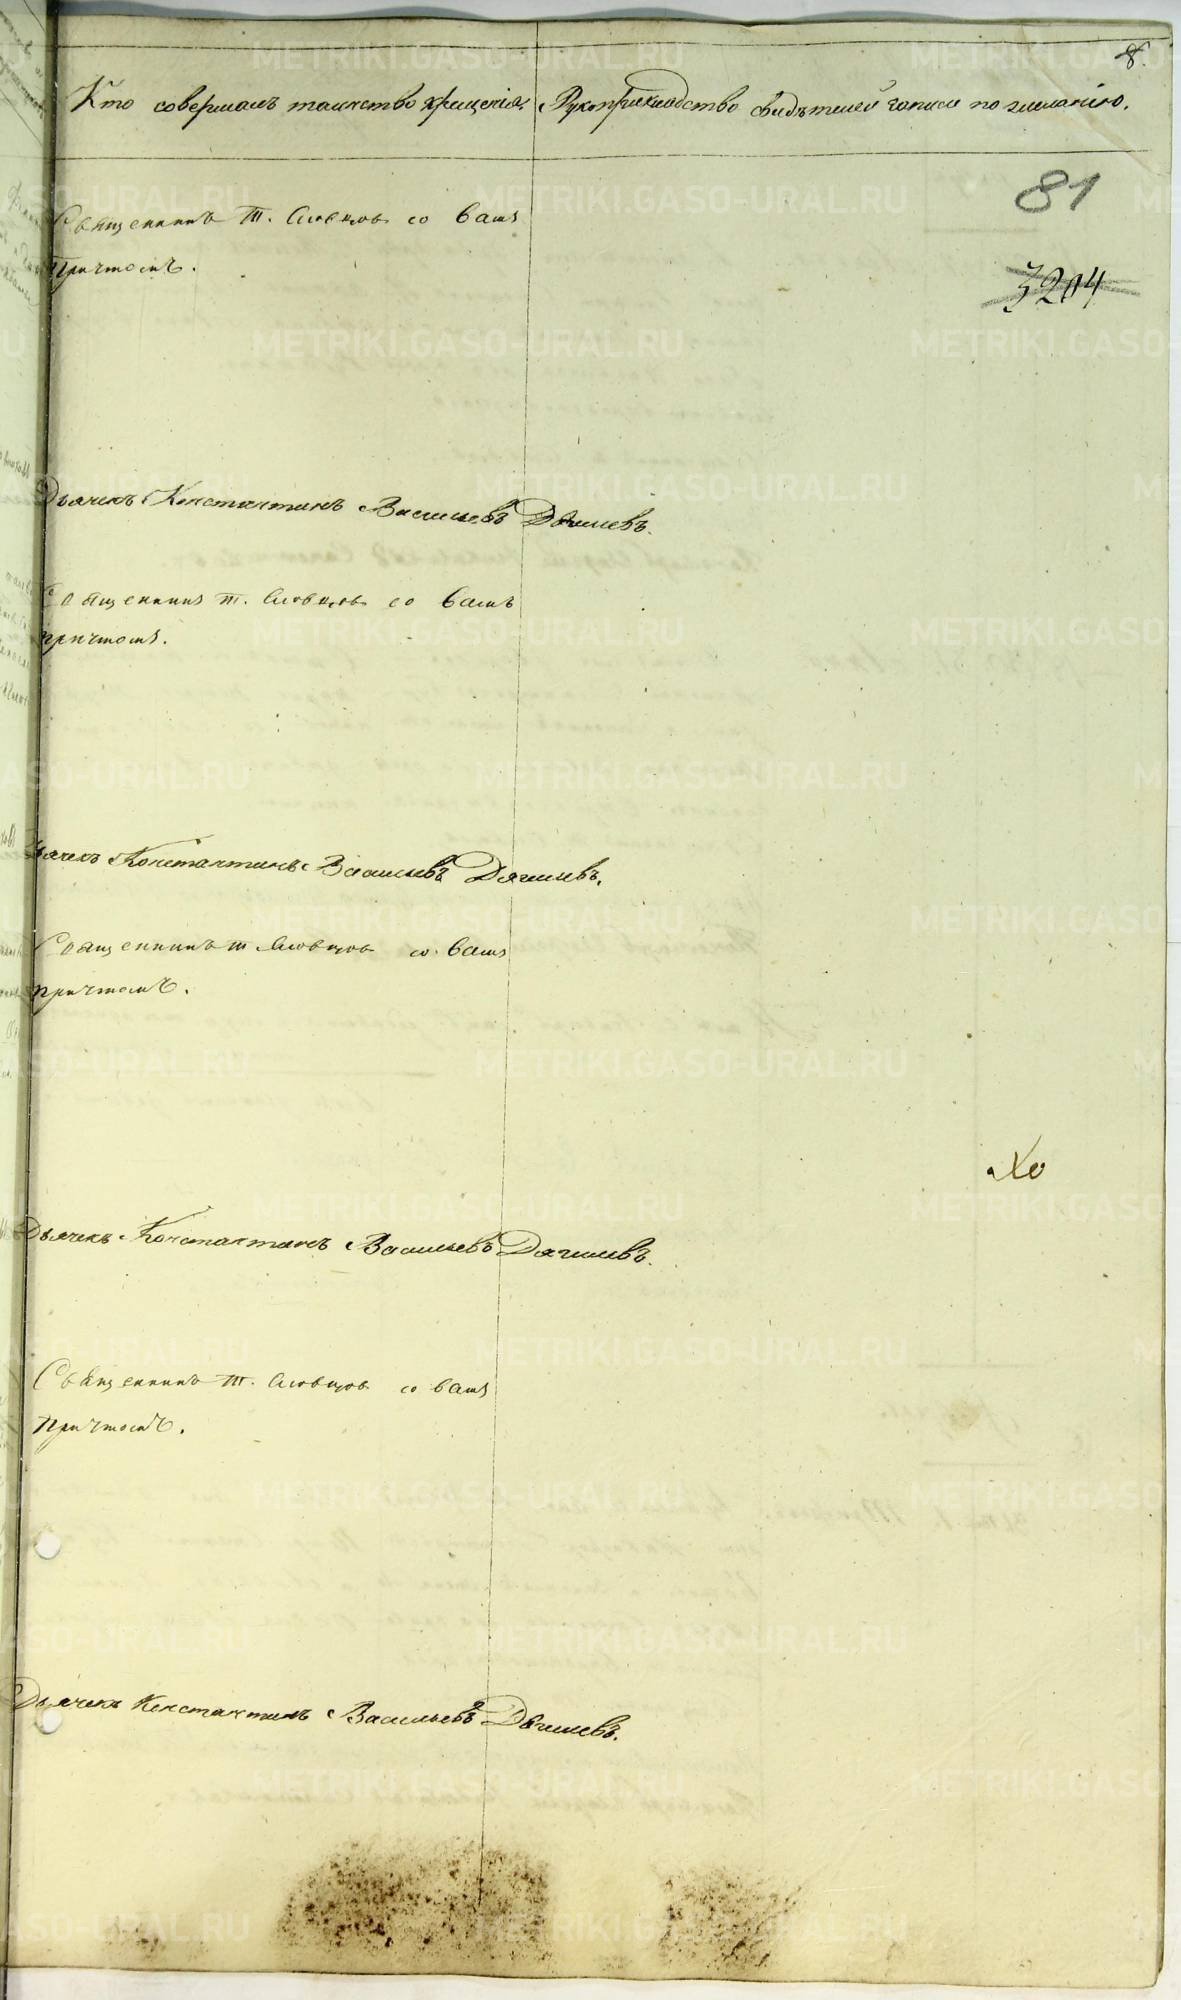 8.
Кто совершалъ таинство крещенія. Рукоприкладство свидѣтелей записи по желанію.
81
Священникъ Т. Словцовъ со всѣмъ
причтомъ.
3204
Дьячекъ Константинъ Васильевъ Дягилевъ.
Священникъ Т. Словцовъ со всѣмъ
причтомъ.
Дьячекъ Константинъ Васильевъ Дягилевъ.
Священникъ Т. Словцовъ со всѣмъ
причтомъ.
Дьячекъ Константинъ Васильевъ Дягилевъ.
Священникъ Т. Словцовъ со всѣмъ
причтомъ.
Дьячекъ Константинъ Васильевъ Дягилевъ.
METRIKI.GASO-URAL.RU